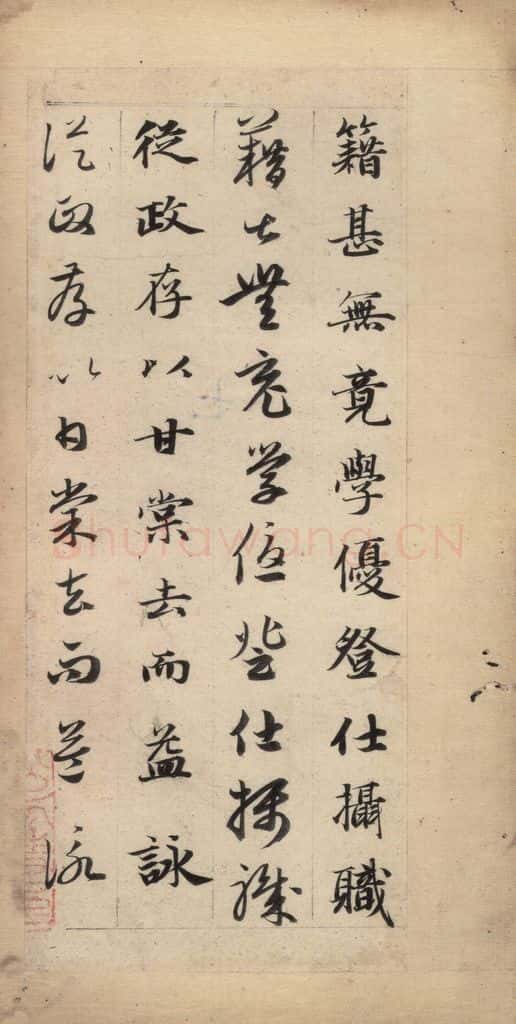 籍甚無竟學優登仕攝職
籍甚無竟學優登仕攝職
從政存以甘棠去而益詠
從政存以甘棠去而益詠
shufawang.CN